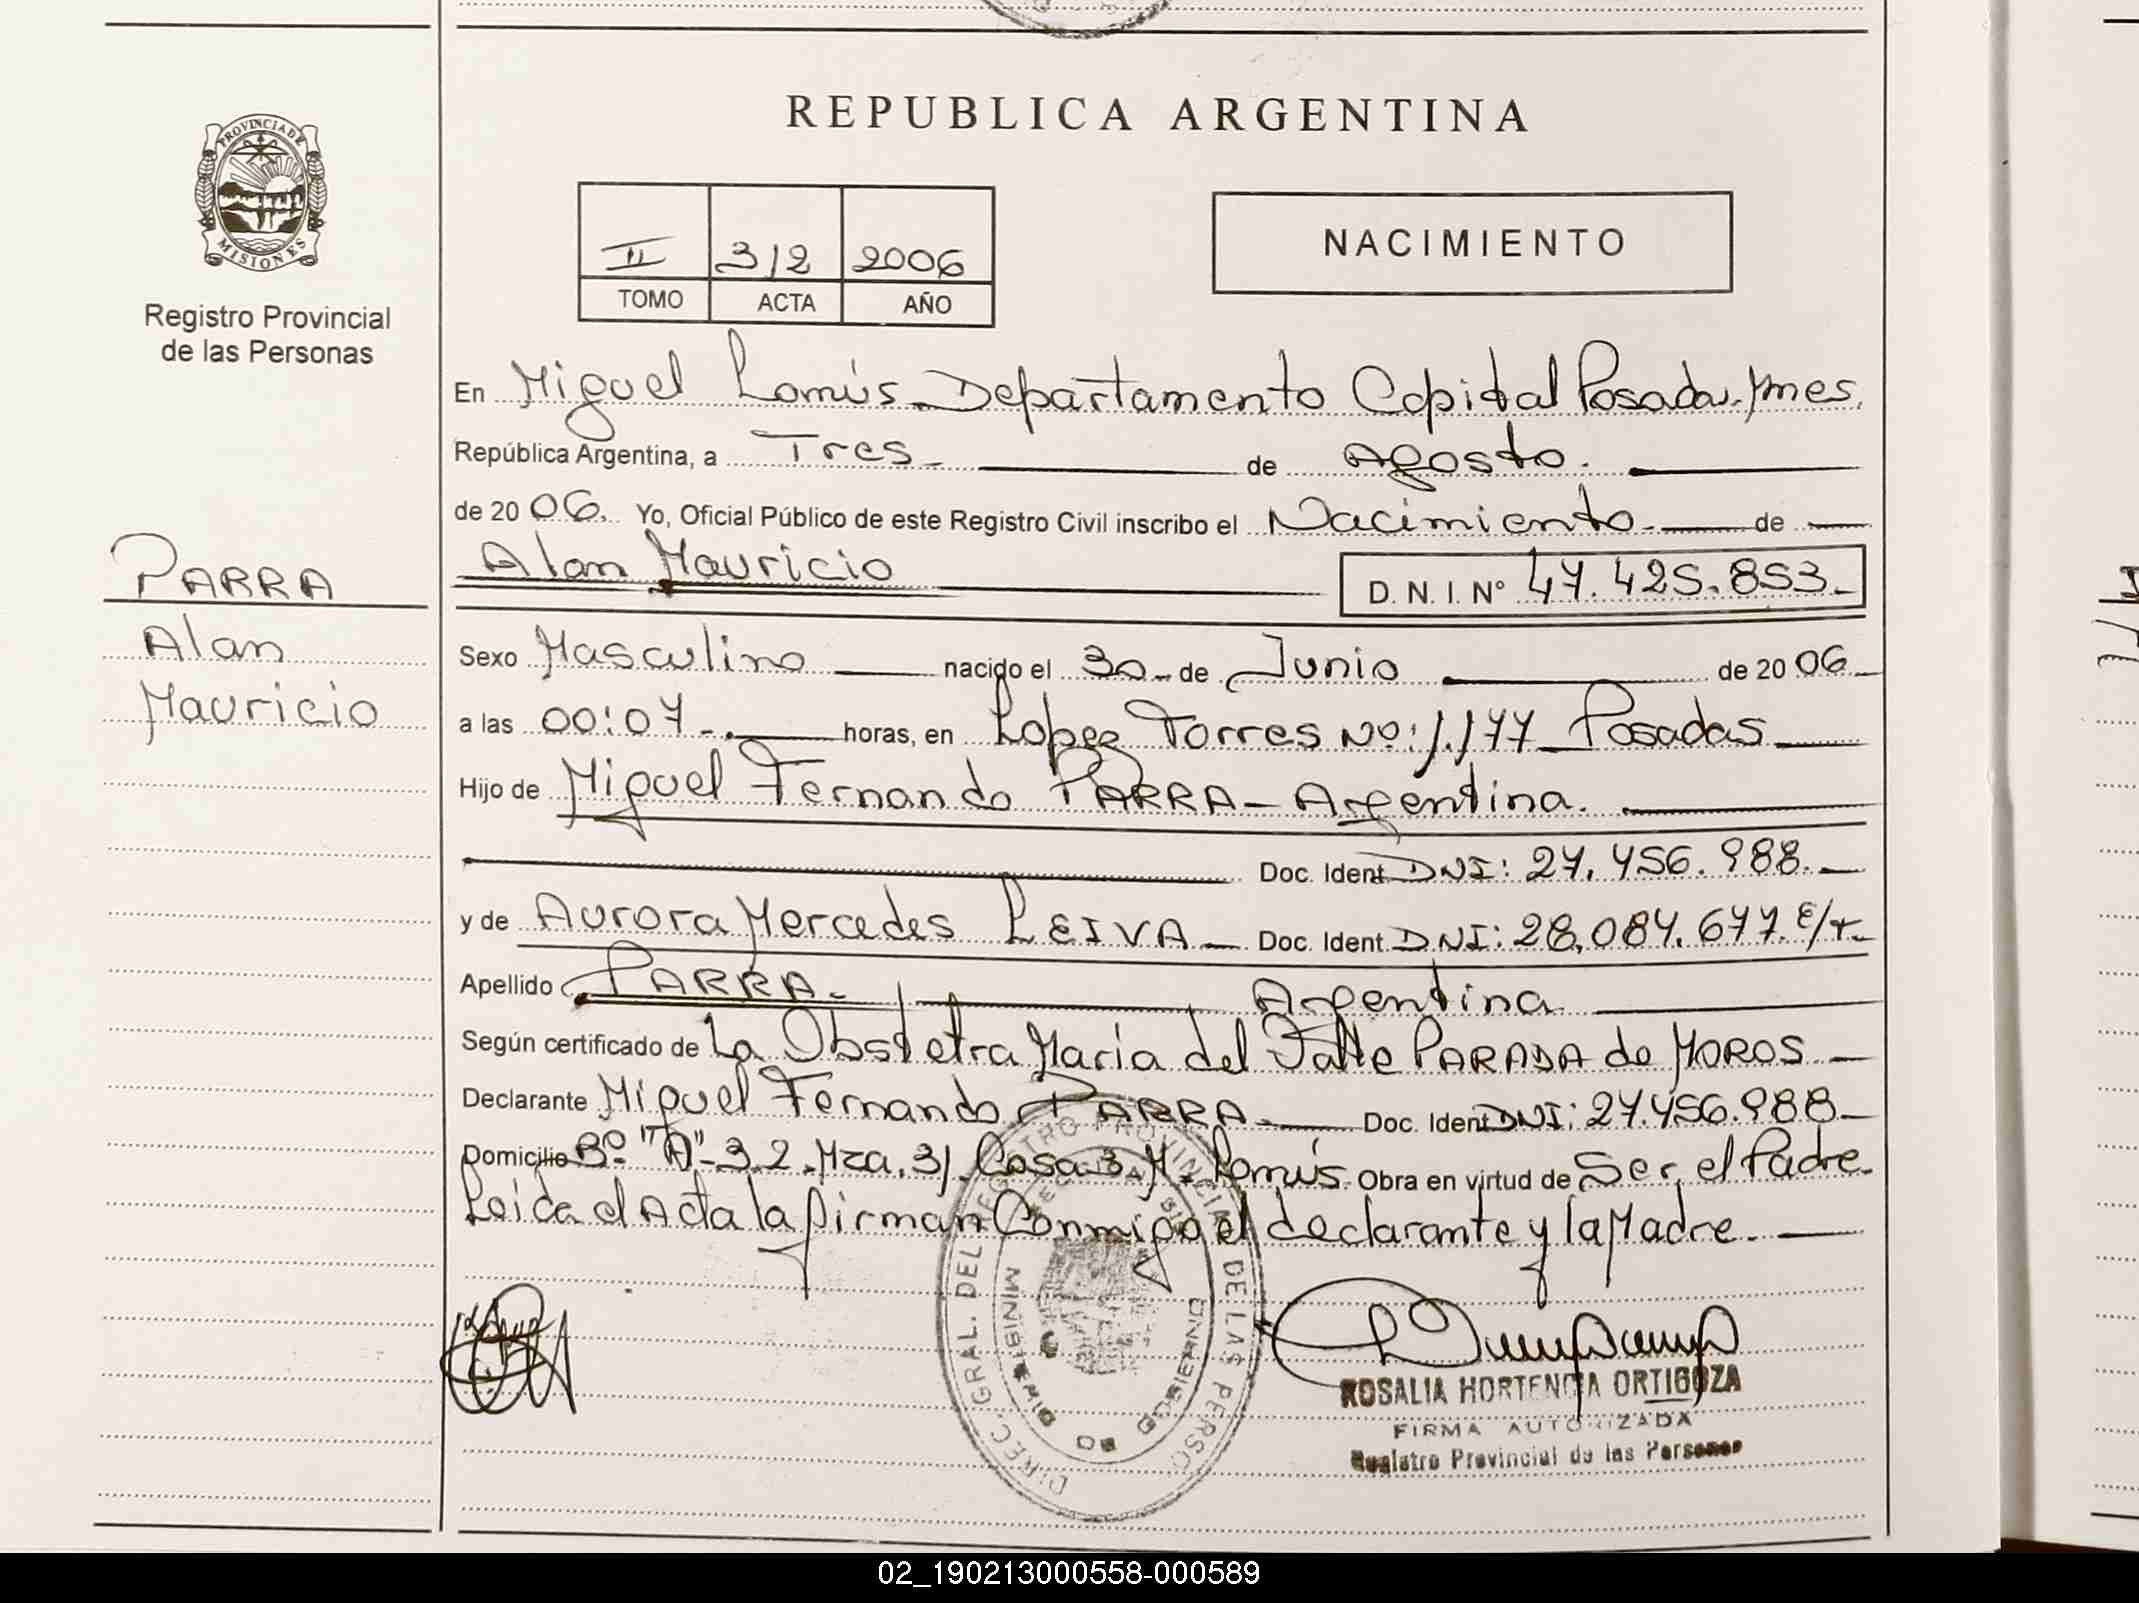 REPUBLICA ARGENTINA
PROVINCIA DE
MISIONES
Registro Provincial
de las Personas
II 312 2006
TOMO ACTA AÑO
NACIMIENTO
En Miguel Lanús Departamento Capital Posadas. Mnes.
República Argentina, a Tres de Agosto.
de 2006. Yo, Oficial Público de este Registro Civil inscribo el Nacimiento de
Alan Mauricio D. N. I. Nº 47.425.853.
PARRA
Alan
Mauricio
Sexo Masculino nacido el 30 de Junio de 2006
a las 00:07 horas, en Lopez Torres Nº: 1.177 Posadas
Hijo de Miguel Fernando PARRA - Argentina.
Doc. Ident. DNI: 27.456.988.
y de Aurora Mercedes LEIVA Doc. Ident. DNI: 28.084.677.
Apellido PARRA. Argentina
Según certificado de La Obstetra Maria del Valle PARADA de MOROS
Declarante Miguel Fernando PARRA Doc. Ident DNI: 27.456.988
Domicilio Bº "A"-3.2. Mza. 31. Casa 3 M. Lanús. Obra en virtud de Ser el Padre.
Leida el Acta la firman Conmigo el declarante y la Madre.
DIREC. GRAL. DEL REGISTRO PROVINCIAL DE LAS PERSO
MINISTERIO DE GOBIERNO
ROSALIA HORTENCIA ORTIGOZA
FIRMA AUTORIZADA
Registro Provincial de las Personas
02_190213000558-000589